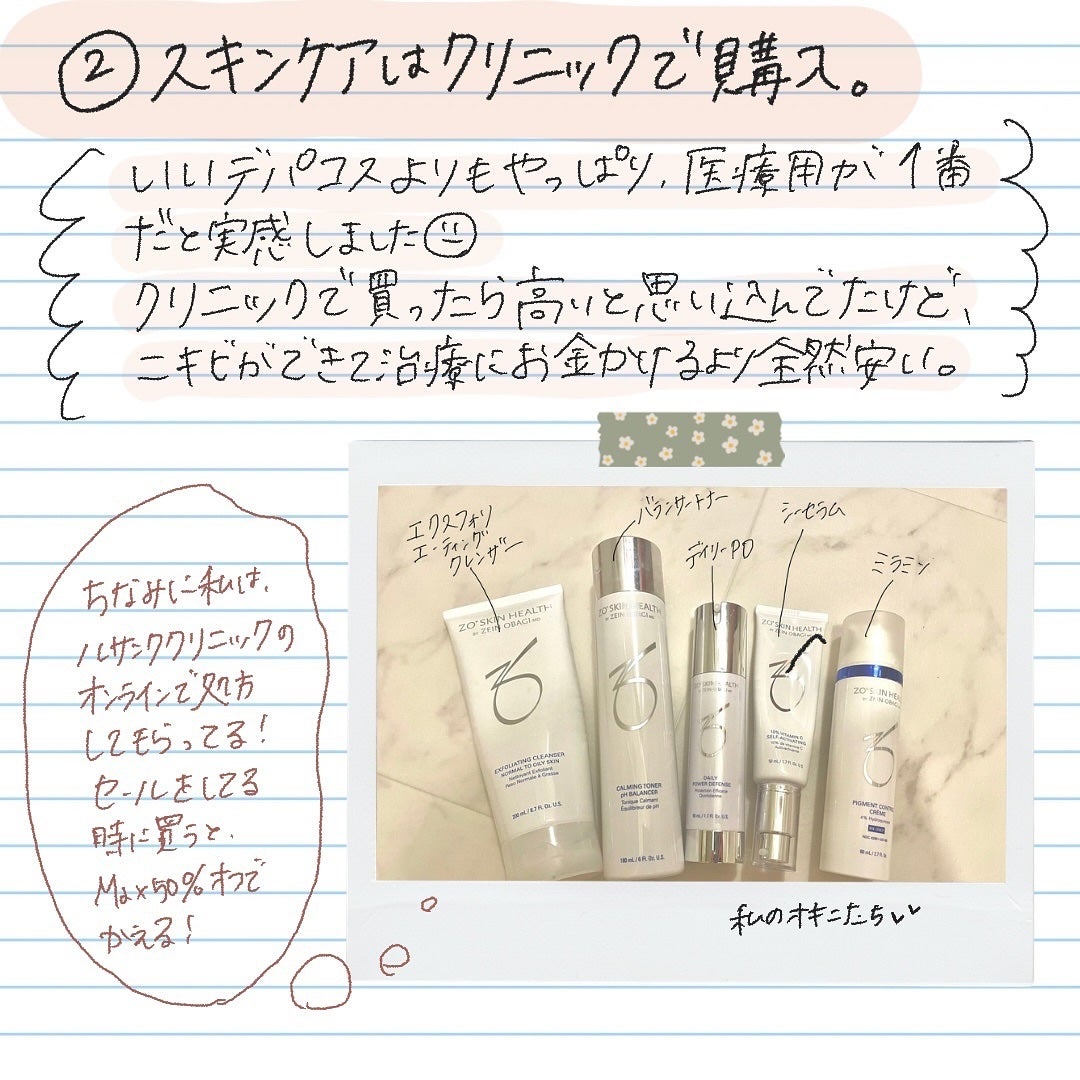 ②スキンケアはクリニックで購入。
いいデパコスよりもやっぱり、医療用が1番
だと実感しました
クリニックで買ったら高いと思い込んでたけど、
ニキビができて治療にお金かけるより全然安い。
エクスフォリ
エーティング
クレンザー
バランサートナー
デイリーPD
シーセラム
ミラミン
ZO® SKIN HEALTH
BY ZEIN OBAGI MD
EXFOLIATING CLEANSER
NORMAL TO OILY SKIN
Nettoyant Exfoliant
Peau Normale à Grasse
200 mL / 6.7 Fl. Oz. U.S.
ZO® SKIN HEALTH
BY ZEIN OBAGI MD
CALMING TONER
pH BALANCER
Tonique Calmant
Équilibreur de pH
180 mL / 6 Fl. Oz. U.S.
ZO® SKIN HEALTH
BY ZEIN OBAGI MD
DAILY
POWER DEFENSE
Protection Efficace
Quotidienne
50 mL / 1.7 Fl. Oz. U.S.
ZO® SKIN HEALTH
BY ZEIN OBAGI MD
10% VITAMIN C
SELF-ACTIVATING
50 mL / 1.7 Fl. Oz. U.S.
ZO® SKIN HEALTH
BY ZEIN OBAGI MD
PIGMENT CONTROL
CRÈME
4% Hydroquinone
80 mL / 2.7 Fl. Oz.
私のオキニたち
ちなみに私は、
ルサンククリニックの
オンラインで処方
してもらってる!
セールをしてる
時に買うと、
Max50%オフで
かえる!